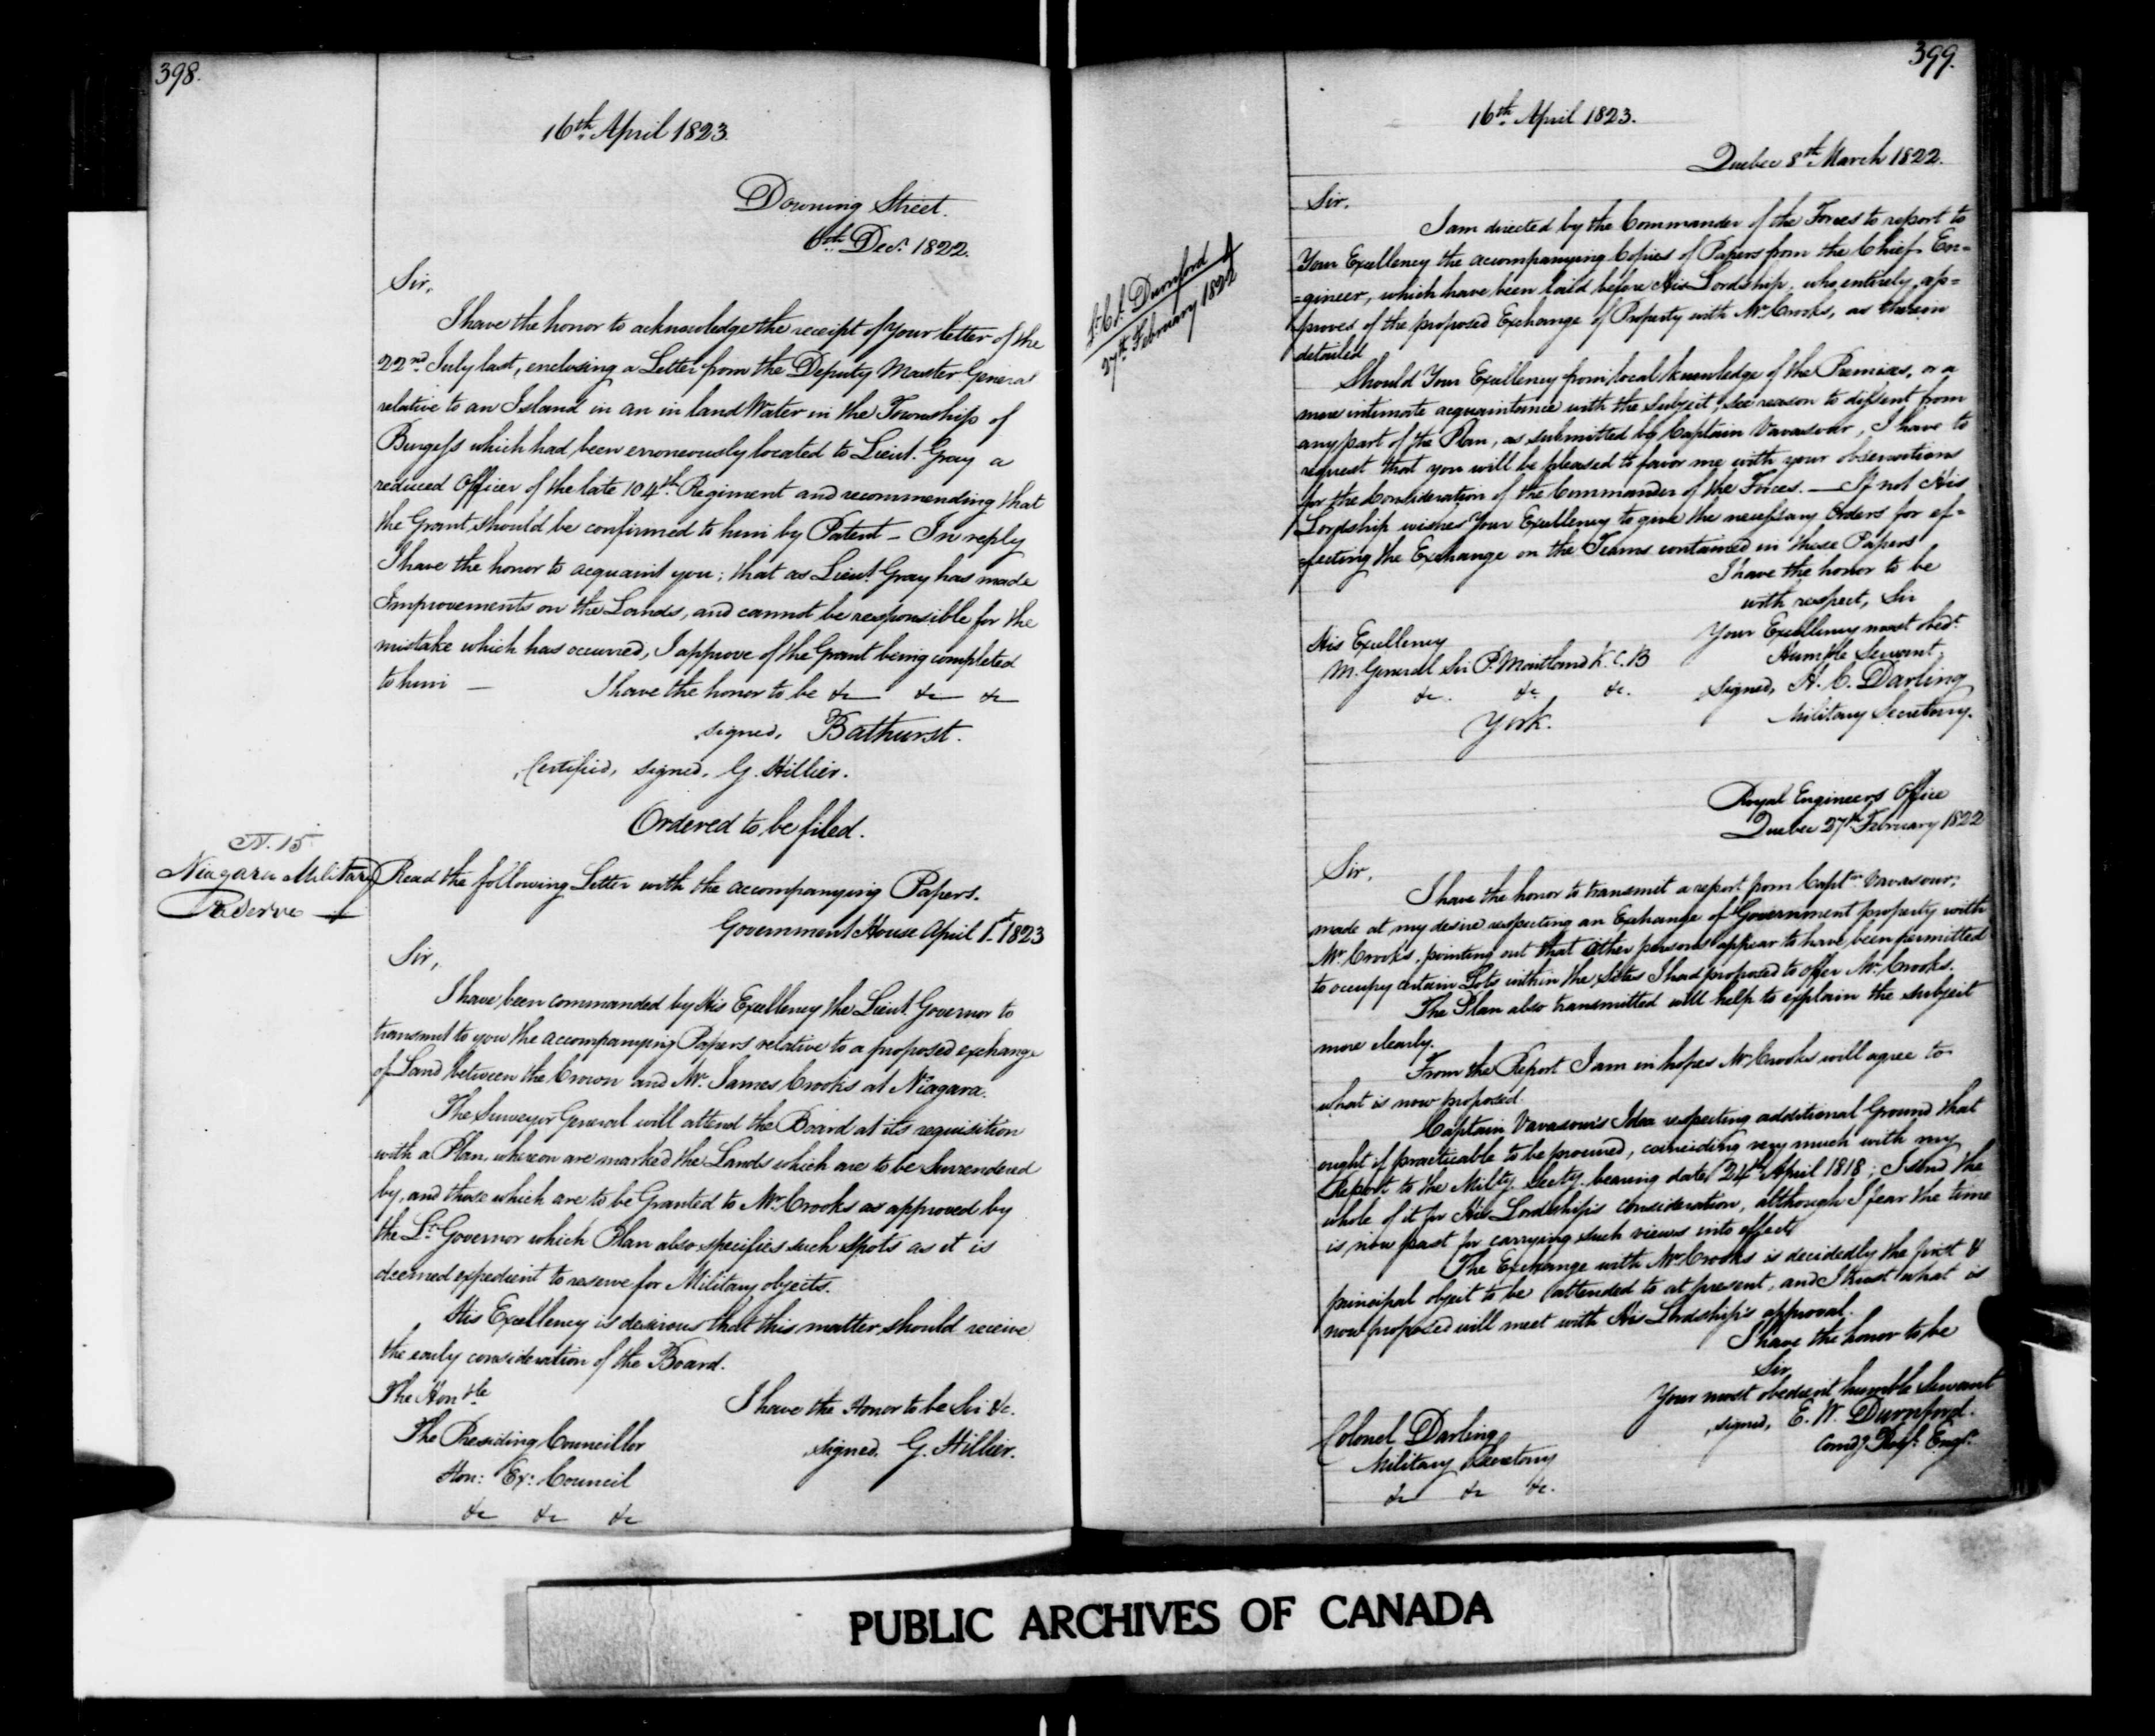 398.
16th April 1823.
Downing Street.
6th Decr. 1822.
Sir,
I have the honor to acknowledge the receipt of your letter of the
22nd July last, enclosing a Letter from the Deputy Master General
relative to an Island in an in land Water in the Township of
Burgess which had been erroneously located to Lieut. Gray a
reduced Officer of the late 104th Regiment and recommending that
the Grant should be confirmed to him by Patent – In reply
I have the honor to acquaint you; that as Lieut. Gray has made
Improvements on the Lands, and cannot be responsible for the
mistake which has occurred, I approve of the Grant being completed
to him — I have the honor to be &c &c &c
signed, Bathurst.
Certified, signed, G. Hillier.
Ordered to be filed.
N. 15
Niagara Military
Reserve
Read the following Letter with the accompanying Papers.
Government House April 1st 1823
Sir,
I have been commanded by His Excellency the Lieut. Governor to
transmit to you the accompanying Papers relative to a proposed exchange
of Land between the Crown and Mr. James Crooks at Niagara.
The Surveyor General will attend the Board at its requisition
with a Plan, whereon are marked the Lands which are to be Surrendered
by, and those which are to be Granted to Mr. Crooks as approved by
the Lt. Governor which Plan also specifies such spots as it is
deemed expedient to reserve for Military objects.
His Excellency is desirous that this matter should receive
the early consideration of the Board.
The Honble I have the Honor to be Sir &c.
The Presiding Councillor signed, G. Hillier.
Hon: Ex: Council
&c &c &c
399.
16th April 1823.
Quebec 8th March 1822.
Sir,
I am directed by the Commander of the Forces to report to
Your Excellency the accompanying Copies of Papers from the Chief En=
=gineer, which have been laid before His Lordship, who entirely ap=
proves of the proposed Exchange of Property with Mr. Crooks, as therein
detailed
Should Your Excellency from local knowledge of the Premises, or a
more intimate acquaintance with the subject, see reason to dissent from
any part of the Plan, as submitted by Captain Vavasour, I have to
request that you will be pleased to favor me with your observations
for the Consideration of the Commander of the Forces. — If not His
Lordship wishes Your Excellency to give the necessary Orders for ef=
fecting the Exchange on the Terms contained in those Papers
I have the honor to be
with respect, Sir
Your Excellency most obedt.
Humble Servant,
signed, H. C. Darling
Military Secretary.
His Excellency
M. General Sir P. Maitland K.C.B
&c. &c. &c.
York.
27th February 1822
Durnford
Royal Engineers Office
Quebec 27th February 1822
Sir,
I have the honor to transmit a report from Captn. Vavasour,
made at my desire respecting an Exchange of Government property with
Mr. Crooks, pointing out that other persons appear to have been permitted
to occupy certain Lots within the Sites I had proposed to offer Mr. Crooks.
The Plan also transmitted will help to explain the subject
more clearly.
From the Report I am in hopes Mr. Crooks will agree to
what is now proposed.
Captain Vavasour's Idea respecting additional Ground that
ought if practicable to be procured, coinciding very much with my
Report to the Milty. Secty. bearing date 24th April 1818; I send the
whole of it for His Lordship's consideration, although I fear the time
is now past for carrying such views into effect.
The Exchange with Mr. Crooks is decidedly the first &
principal object to be attended to at present, and I trust what is
now proposed will meet with His Lordship's approval.
I have the honor to be
Sir,
Your most obedient humble Servant
signed, E. W. Durnford.
Comdg. Royl. Engrs.
Colonel Darling
Military Secretary
&c &c &c.
PUBLIC ARCHIVES OF CANADA